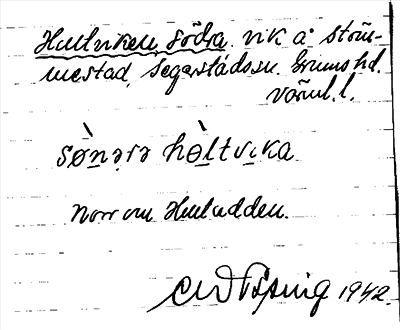 Hultviken, södra vik å Ström-
mestad, Segerstads sn. Grums hd.
Värml. l.
sø̀nərə hò̤ltvi̤ka
Norr om Huludden.
1942.